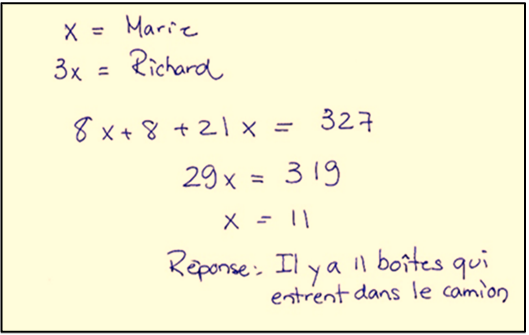 x = Marie
3x = Richard
8x + 8 + 21x = 327
29x = 319
x = 11
Réponse: Il y a 11 boîtes qui
entrent dans le camion